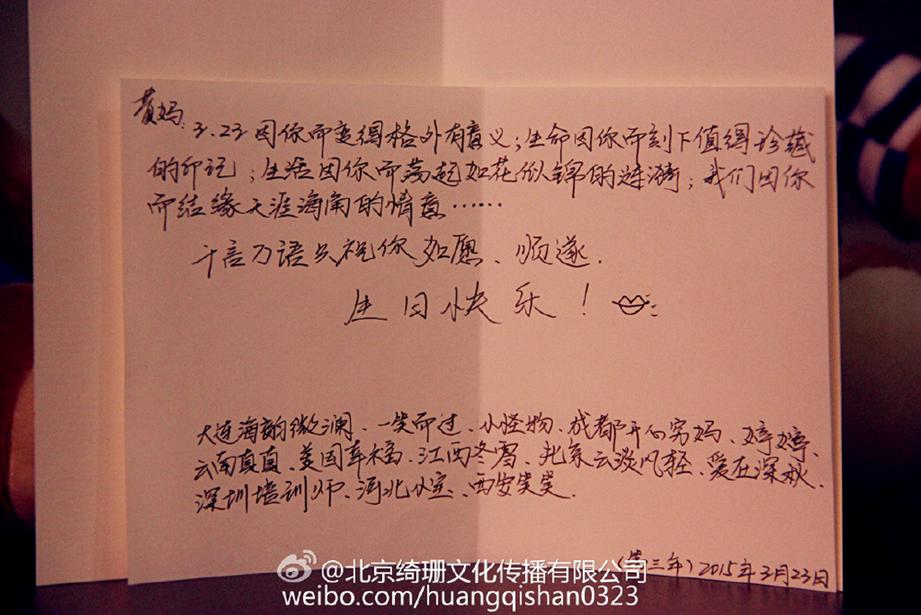 黄妈:
3.23因你而变得格外有意义;生命因你而刻下值得珍藏
的印记;生活因你而荡起如花似锦的涟漪;我们因你
而结缘天涯海角的情意……
千言万语只祝你如愿、顺遂.
生日快乐!
大连海韵微澜、一笑而过、小怪物、成都开心穷妈、婷婷、
云南真真、美国幸福、江西冬雪、北京云淡风轻、爱在深秋、
深圳培训师、河北小宝、西安笑笑.
(第三年)2015年3月23日
@北京绮珊文化传播有限公司
weibo.com/huangqishan0323